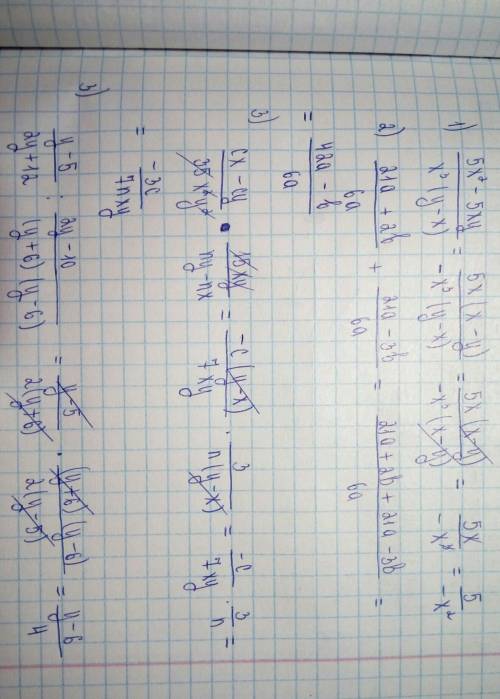 1) (5x² - 5xy)/(x³(y-x)) = (5x(x-y))/(-x³(y-x)) = (5x(x-y))/(-x³(x-y)) = 5x/(-x³) = 5/(-x²)
2) (21a + 2b)/(6a) + (21a - 3b)/(6a) = (21a + 2b + 21a - 3b)/(6a) =
= (42a - b)/(6a)
3) (cx - cy)/(35x²y²) · (15xy)/(ny - nx) = (-c(y-x))/(7xy) · 3/(n(y-x)) = (-c)/(7xy) · 3/n =
= (-3c)/(7nxy)
3) (y-5)/(2y+12) : (2y-10)/((y+6)(y-6)) = (y-5)/(2(y+6)) · ((y+6)(y-6))/(2(y-5)) = (y-6)/4